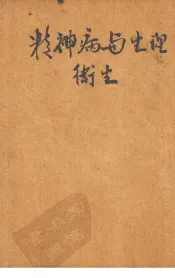 精神病与生理
衛生